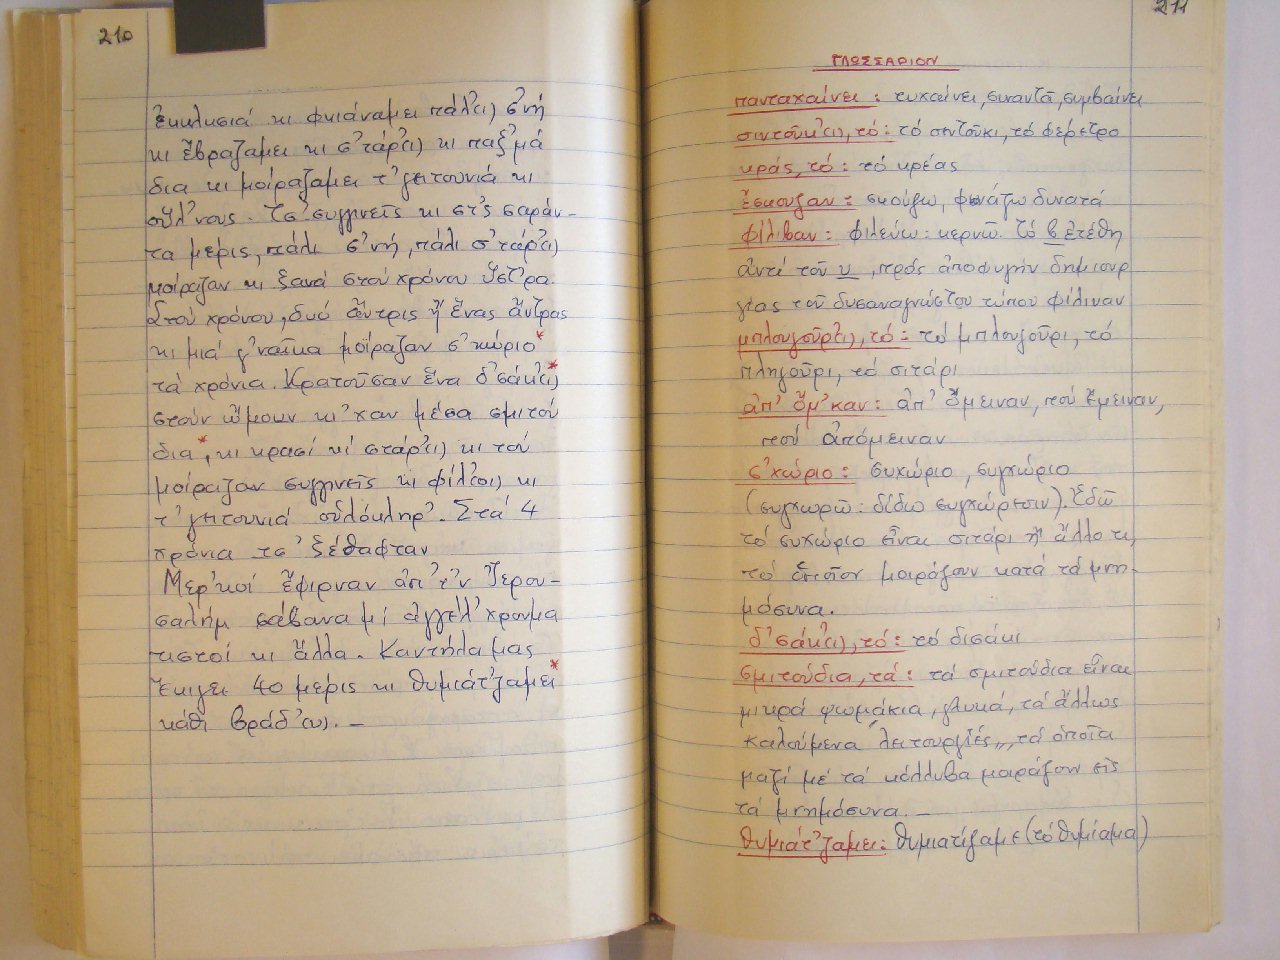 210
ἐκκλησιά κι φκιάναμει πάλ(ι) σ'νή
κι ἔβραζαμει κι σ'τάρ(ι) κι παξ'μά
δια κι μοίραζαμει τ'γειτουνιά κι
οὕλ'νους. Τσ' συγγνεῖς κι στ'ς σαράν-
τα μέρις, πάλι σ'νή, πάλι σ'τάρ(ι)
μοίραζαν κι ξανά στού χρόνου ὕστιρα.
Στού χρόνου, δυό ἄντρις ἤ ἕνας ἄντρας
κι μιά γ'ναῖκα μοίραζαν σ'χώριο*
τά χρόνια. Κρατοῦσαν ἕνα δ'σάκ(ι)*
στούν ὦμουν κι'χαν μέσα σμιτού
δια*, κι κρασί κί στάρ(ι) κι τού
μοίραζαν συγγνεῖς κί φίλ(οι) κι
τ'γειτουνιά οὑλόκληρ'. Στά 4
χρόνια τσ' ξέθαφταν
Μερ'κοί ἔφιρναν ἀπ'τ'ν Ἱερου-
σαλήμ σάβανα μί ἀγγέλ' χρουμα
τιστοί κι ἄλλα. Καντήλα μας
ἔκιγει 40 μέρις κι θυμιάτ'ζαμει*
κάθι βράδ'(υ). —
211
ΓΛΩΣΣΑΡΙΟΝ
πανταχαίνει: τυχαίνει, συναντᾶ, συμβαίνει
σιντοῦκ(ι), τό: τό σεντοῦκι, τό φέρετρο
κράς, τό: τό κρέας
ἔσκουζαν: σκούζω, φωνάζω δυνατά
φίλιβαν: φιλεύω: κερνῶ. Τό β ἐτέθη
ἀντί τοῦ υ, πρός ἀποφυγήν δημιουρ
γίας τοῦ δυσαναγνώστου τύπου φίλιυαν
μπλουγοῦρ(ι), τό: τό μπλουγοῦρι, τό
πληγοῦρι, τό σιτάρι
ἀπ' ὄμ'καν: ἀπ' ὄμειναν, πού ἔμειναν,
πού ἀπόμειναν
σ'χώριο: συχώριο, συγχώριο
(συγχωρῶ: δίδω συγχώρεσιν). Ἐδῶ
τό συχώριο εἶναι σιτάρι ἤ ἄλλο τι,
τό ὁποῖον μοιράζουν κατά τά μνη-
μόσυνα.
δ'σάκ(ι), τό: τό δισάκι
σμιτούδια, τά: τά σμιτούδια εἶναι
μικρά ψωμάκια, γλυκά, τά ἄλλως
καλούμενα "λειτουργιές", τά ὁποῖα
μαζί μέ τά κόλλυβα μοιράζουν εἰς
τά μνημόσυνα. —
θυμιάτ'ζαμει: θυμιατίζαμε (τό θυμίαμα)